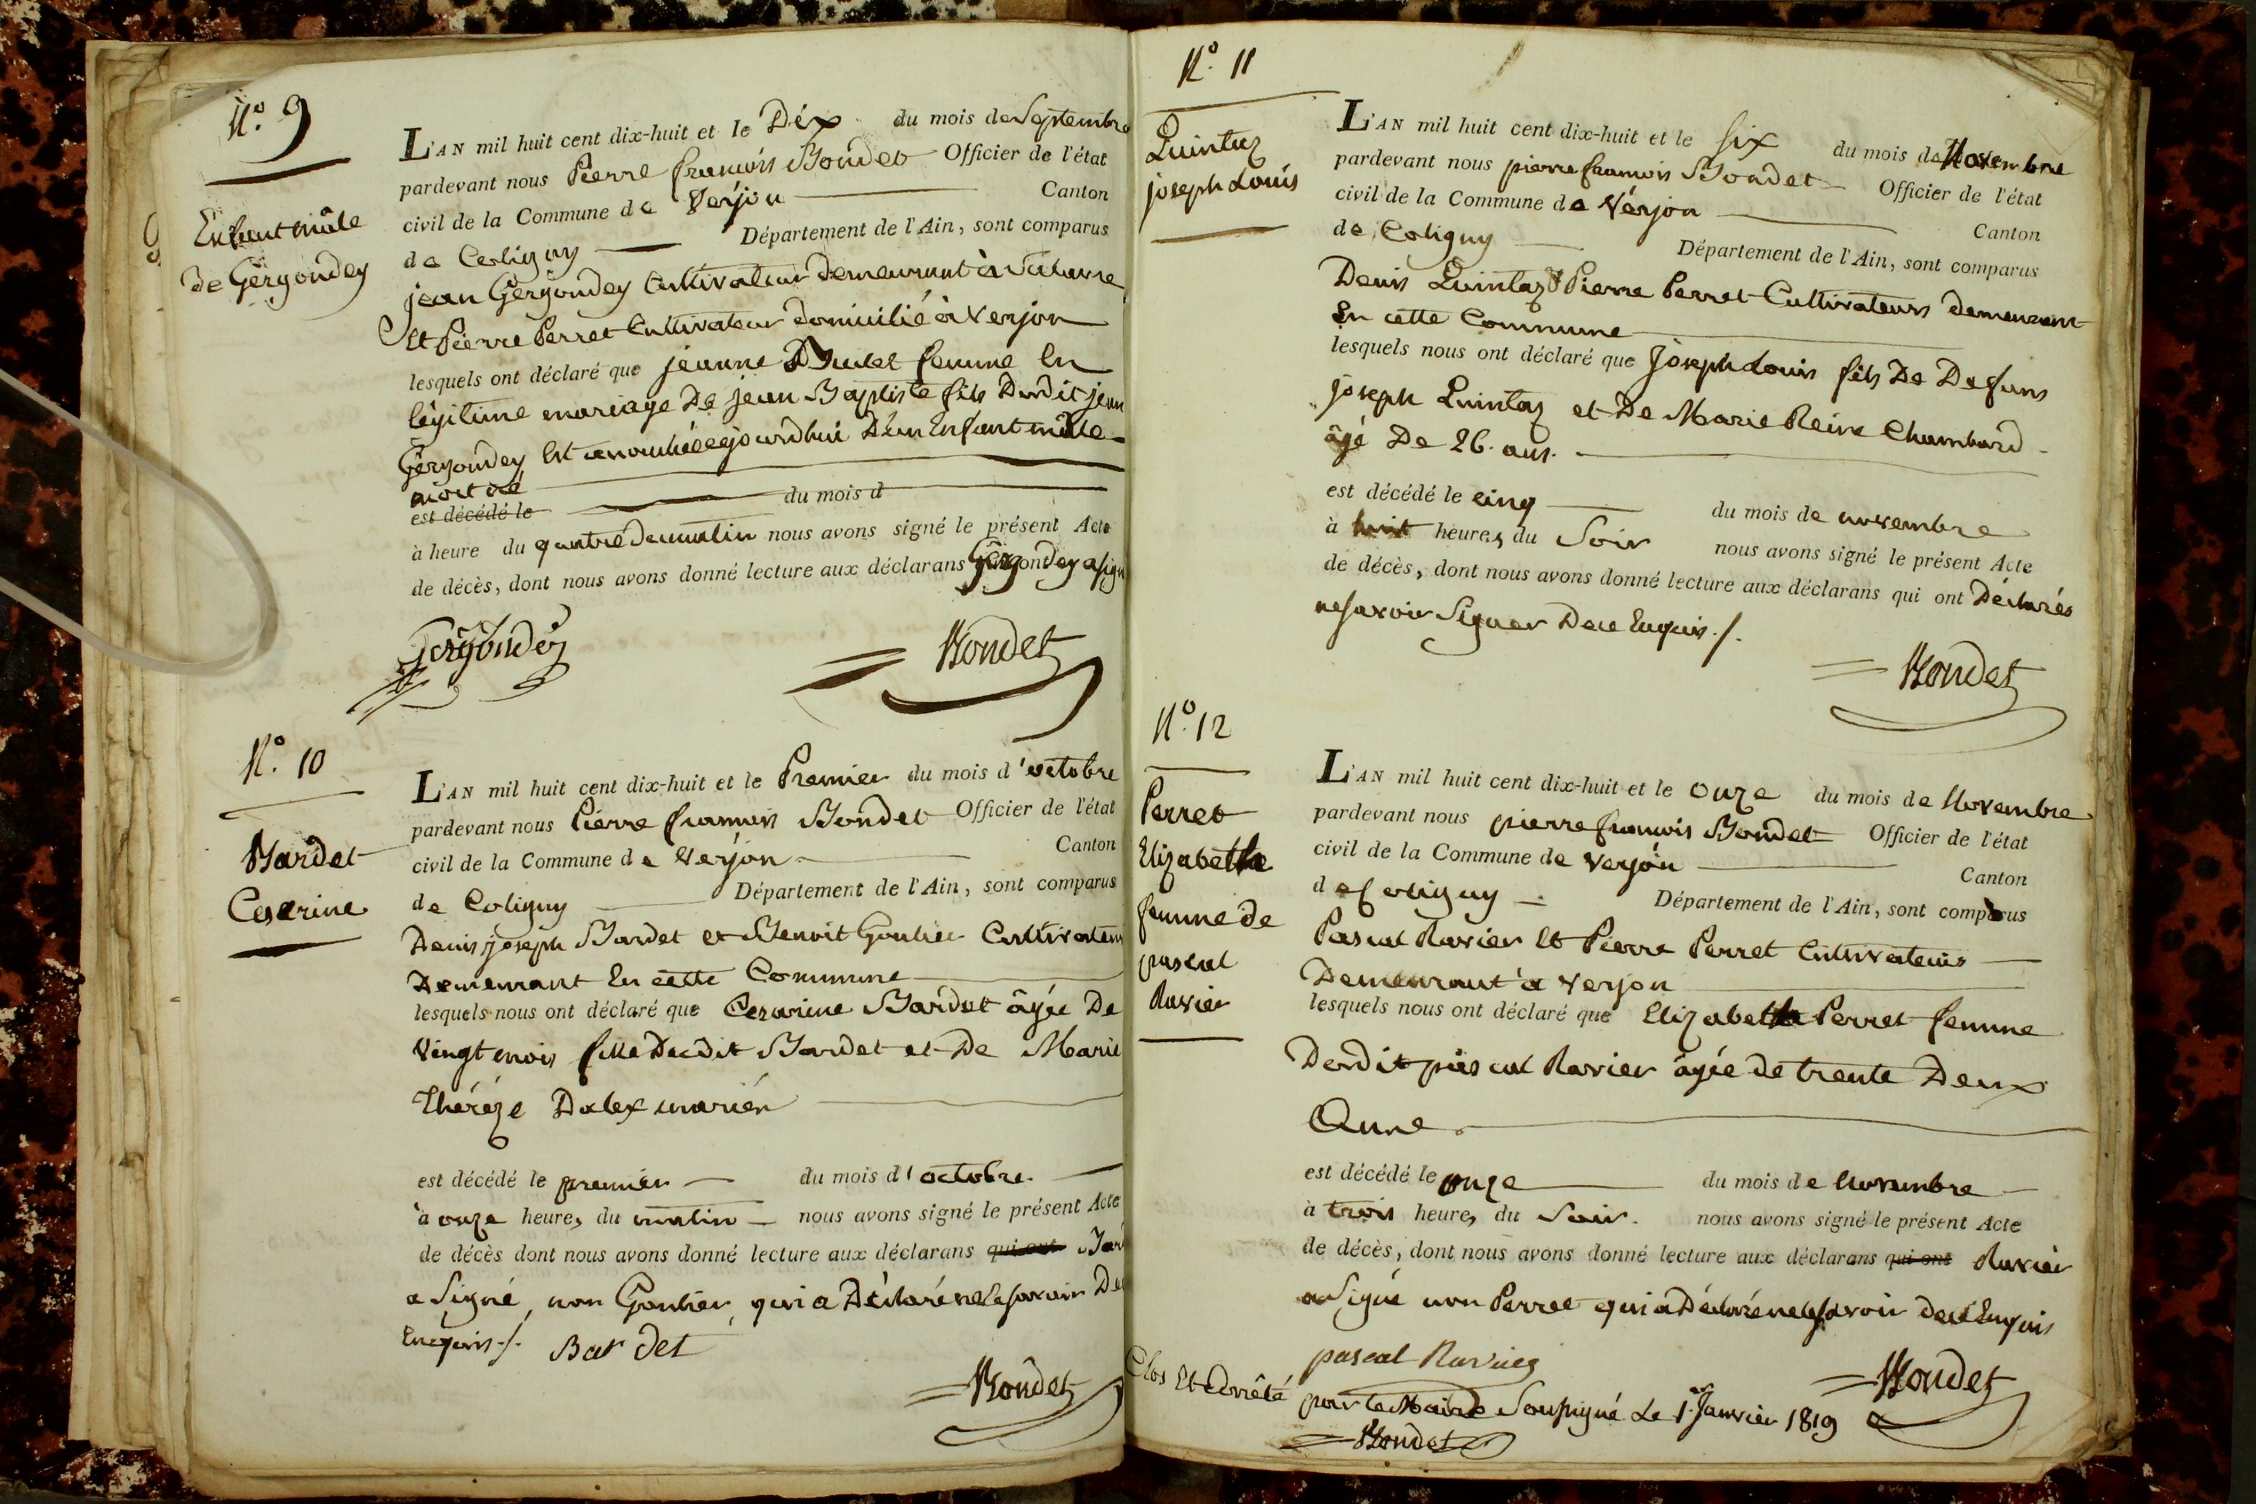 N.º 9
Enfant mâle
de Gergondey
L'AN mil huit cent dix-huit et le Dix du mois de Septembre
pardevant nous Pierre françois Bondet Officier de l'état
civil de la Commune de Verjon Canton
de Coligny Département de l'Ain, sont comparus
jean Gergondey Cultivateur Demeurant à
Et Pierre Perret Cultivateur domicilié à Verjon
lesquels ont déclaré que jeanne femme En
légitime mariage De jean Baptiste fils Dudit jean
Gergondey Est accouchée ajourdhui D'un Enfant mâle
mort né
est décédé le du mois d
à heure du quatre du matin nous avons signé le présent Acte
de décès, dont nous avons donné lecture aux déclarans Gergondey a signé
Gergondey
Bondet
N.º 10
Bardet
Cezarine
L'AN mil huit cent dix-huit et le Premier du mois d'octobre
pardevant nous Pierre françois Bondet Officier de l'état
civil de la Commune de Verjon Canton
de Coligny Département de l'Ain, sont comparus
Denis joseph Bardet et Benoit Gontier Cultivateurs
Demeurant En cette Commune
lesquels nous ont déclaré que Cezarine Bardet âgée De
Vingt mois fille Dudit Bardet et De Marie
Théréze Dalex mariés
est décédé le premier du mois d'octobre
à onze heures du matin nous avons signé le présent Acte
de décès dont nous avons donné lecture aux déclarans qui ont Bard
a Signé, non Gontier, qui a Déclaré ne le savoir De ce
Enquis ./.
Bardet
Bondet
N.º 11
Quintaz
joseph Louis
L'AN mil huit cent dix-huit et le six du mois de Novembre
pardevant nous pierre françois Bondet Officier de l'état
civil de la Commune de Verjon Canton
de Coligny Département de l'Ain, sont comparus
Denis Quintaz & Pierre Perret Cultivateurs Demeurant
En cette Commune
lesquels nous ont déclaré que Joseph Louis fils De Defunt
joseph Quintaz et De Marie Reine Chambard
âgé De 26 ans.
est décédé le cinq du mois de novembre
à huit heures du Soir nous avons signé le présent Acte
de décès, dont nous avons donné lecture aux déclarans qui ont Déclarés
ne savoir Signer De ce Enquis ./.
Bondet
N.º 12
Perret
Elizabethe
femme de
pascal
Ravier
L'AN mil huit cent dix-huit et le onze du mois de Novembre
pardevant nous pierre françois Bondet Officier de l'état
civil de la Commune de Verjon Canton
de Coligny Département de l'Ain, sont comparus
Pascal Ravier Et Pierre Perret Cultivateurs
Demeurant à Verjon
lesquels nous ont déclaré que Elizabethe Perret femme
Dudit pascal Ravier âgée de trente Deux
Anne.
est décédé le onze du mois de Novembre
à trois heures du Soir. nous avons signé le présent Acte
de décès, dont nous avons donné lecture aux déclarans qui ont Ravier
a Signé non Perret qui a Déclaré ne le savoir de ce Enquis
pascal Ravier
Bondet
Clos Et Arrêté par le Maire Soussigné Le 1er Janvier 1819
Bondet